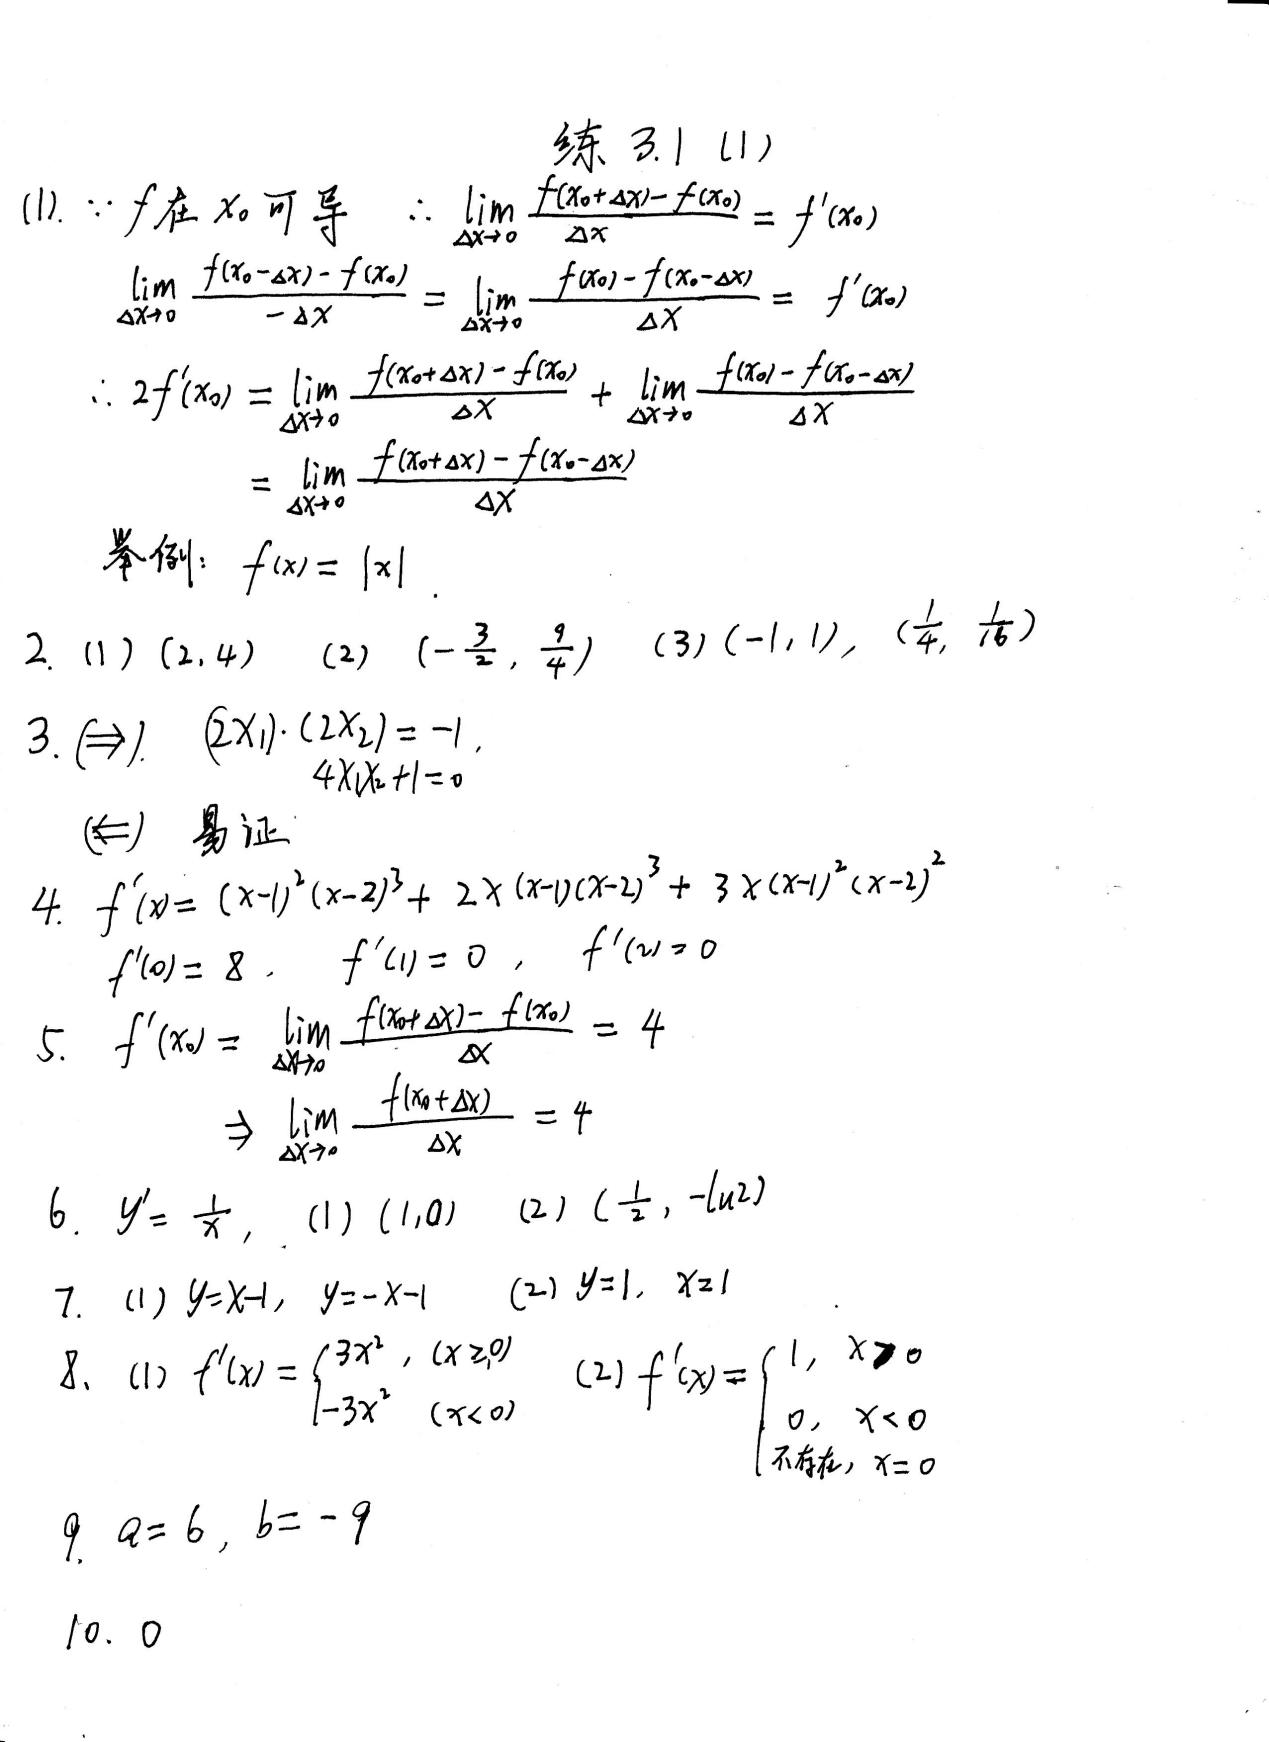 练 3.1 (1)
(1). ∵ f在 x₀ 可导 ∴ lim_{Δx→0} \frac{f(x₀+Δx)-f(x₀)}{Δx} = f'(x₀)
lim_{Δx→0} \frac{f(x₀-Δx)-f(x₀)}{-Δx} = lim_{Δx→0} \frac{f(x₀)-f(x₀-Δx)}{Δx} = f'(x₀)
∴ 2f'(x₀) = lim_{Δx→0} \frac{f(x₀+Δx)-f(x₀)}{Δx} + lim_{Δx→0} \frac{f(x₀)-f(x₀-Δx)}{Δx}
= lim_{Δx→0} \frac{f(x₀+Δx)-f(x₀-Δx)}{Δx}
举例: f(x) = |x|.
2. (1) (2,4) (2) (-\frac{3}{2}, \frac{9}{4}) (3) (-1,1), (\frac{1}{4}, \frac{1}{16})
3. (⇒). (2x₁)·(2x₂) = -1,
4x₁x₂+1=0
(⇐) 易证
4. f'(x) = (x-1)²(x-2)³ + 2x(x-1)(x-2)³ + 3x(x-1)²(x-2)²
f'(0) = 8, f'(1) = 0, f'(2) = 0
5. f'(x₀) = lim_{Δx→0} \frac{f(x₀+Δx)-f(x₀)}{Δx} = 4
⇒ lim_{Δx→0} \frac{f(x₀+Δx)}{Δx} = 4
6. y' = \frac{1}{x}, (1) (1,0) (2) (\frac{1}{2}, -ln2)
7. (1) y=x-1, y=-x-1 (2) y=1, x=1
8. (1) f'(x) = { 3x², (x≥0) (2) f'(x) = { 1, x>0
-3x² (x<0) 0, x<0
不存在, x=0
9. a=6, b=-9
10. 0